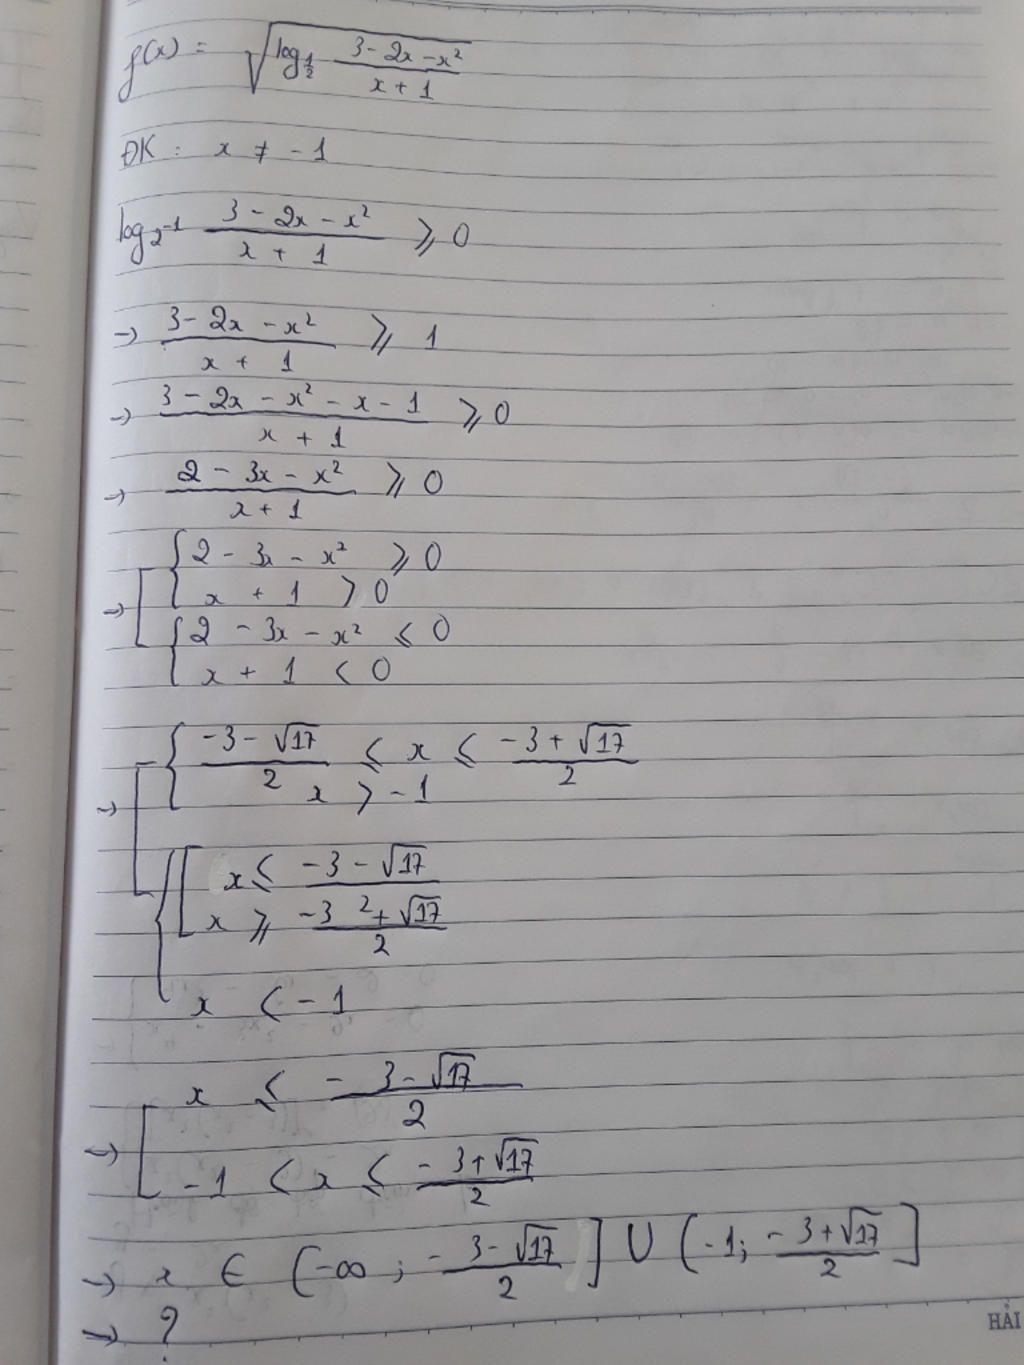 f(x) = √(log_{1/2} (3 - 2x - x²)/(x + 1))
ĐK : x ≠ -1
log_{2^{-1}} (3 - 2x - x²)/(x + 1) ⩾ 0
→ (3 - 2x - x²)/(x + 1) ⩾ 1
→ (3 - 2x - x² - x - 1)/(x + 1) ⩾ 0
→ (2 - 3x - x²)/(x + 1) ⩾ 0
→ [ { 2 - 3x - x² ⩾ 0
x + 1 > 0
{ 2 - 3x - x² ⩽ 0
x + 1 < 0
→ [ { (-3 - √17)/2 ⩽ x ⩽ (-3 + √17)/2
x > -1
{ [ x ⩽ (-3 - √17)/2
x ⩾ (-3 + √17)/2
x < -1
→ [ x ⩽ (-3 - √17)/2
-1 < x ⩽ (-3 + √17)/2
→ x ∈ (-∞ ; (-3 - √17)/2] ∪ (-1; (-3 + √17)/2]
→ ?
HẢI